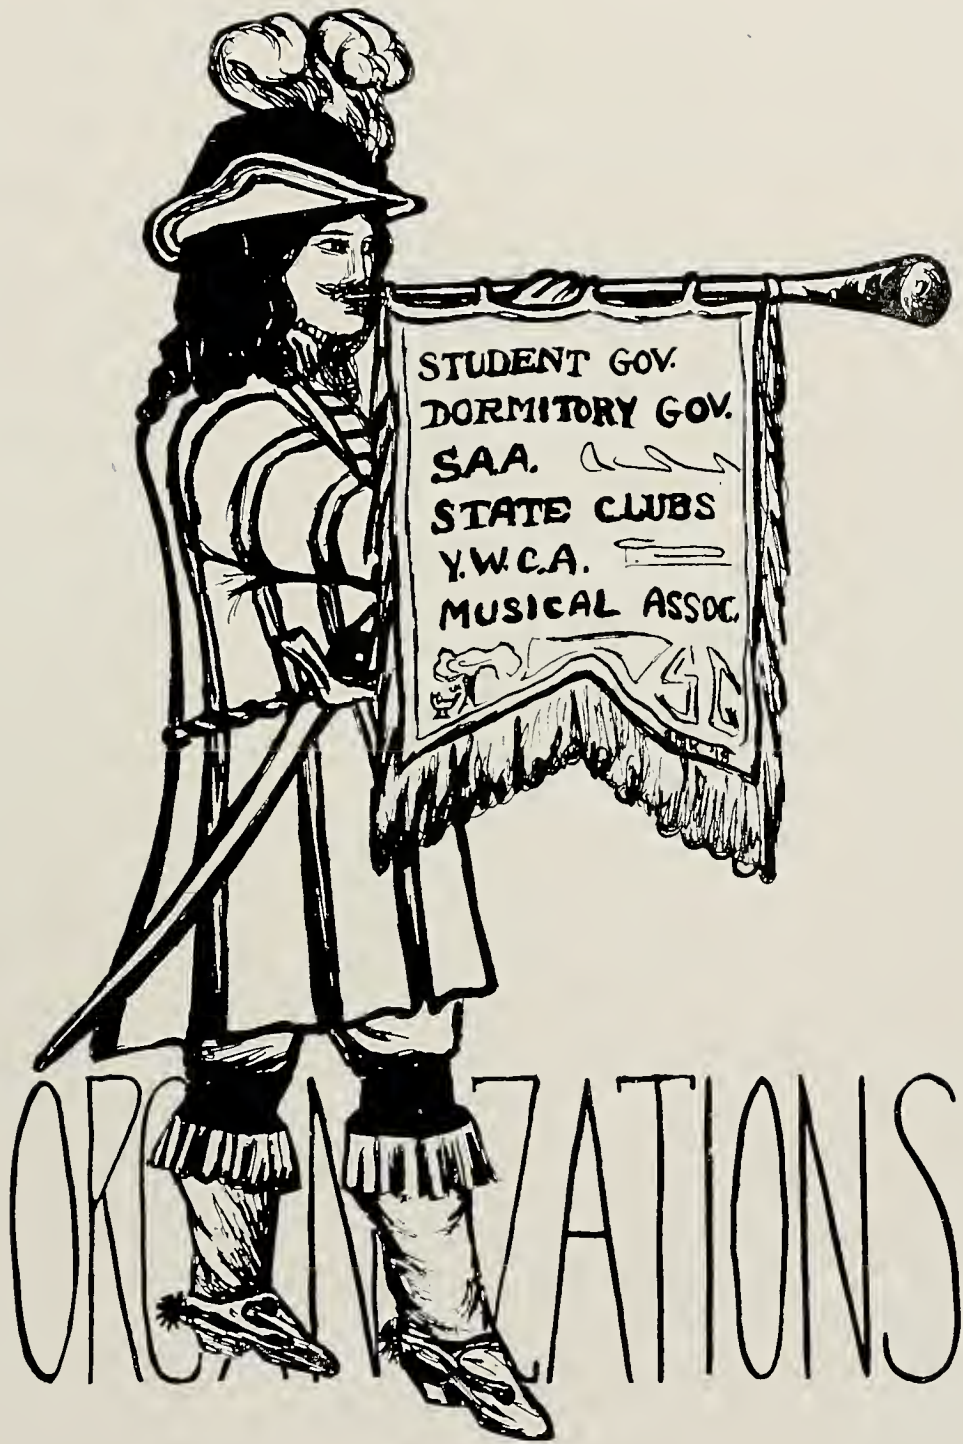 STUDENT GOV.
DORMITORY GOV.
S.A.A.
STATE CLUBS
Y.W.C.A.
MUSICAL ASSOC.
ORGANIZATIONS